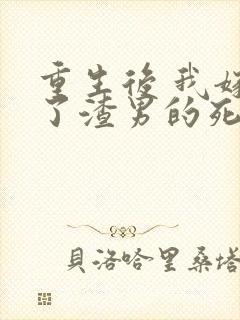 重生後我嫁
了渣男的死
貝洛哈里桑塔